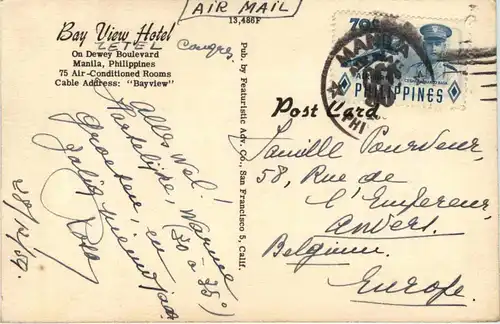 AIR MAIL
Bay View Hotel
ZETEL
On Dewey Boulevard
Manila, Philippines
75 Air-Conditioned Rooms
Cable Address: "Bayview"
Congres.
13,486F
Pub. by Featuristic Adv. Co., San Francisco 5, Calif.
Post Card
70c
MANILA
PHILIPPINES
PHI
Alles Wel!
Hartelijke, Warme
(30 a 35°)
Groeten, en
Zalig nieuwjaar
28/12/59.
Famille
58, Rue de
l'Empereur,
Anvers.
Belgium.
Europe.